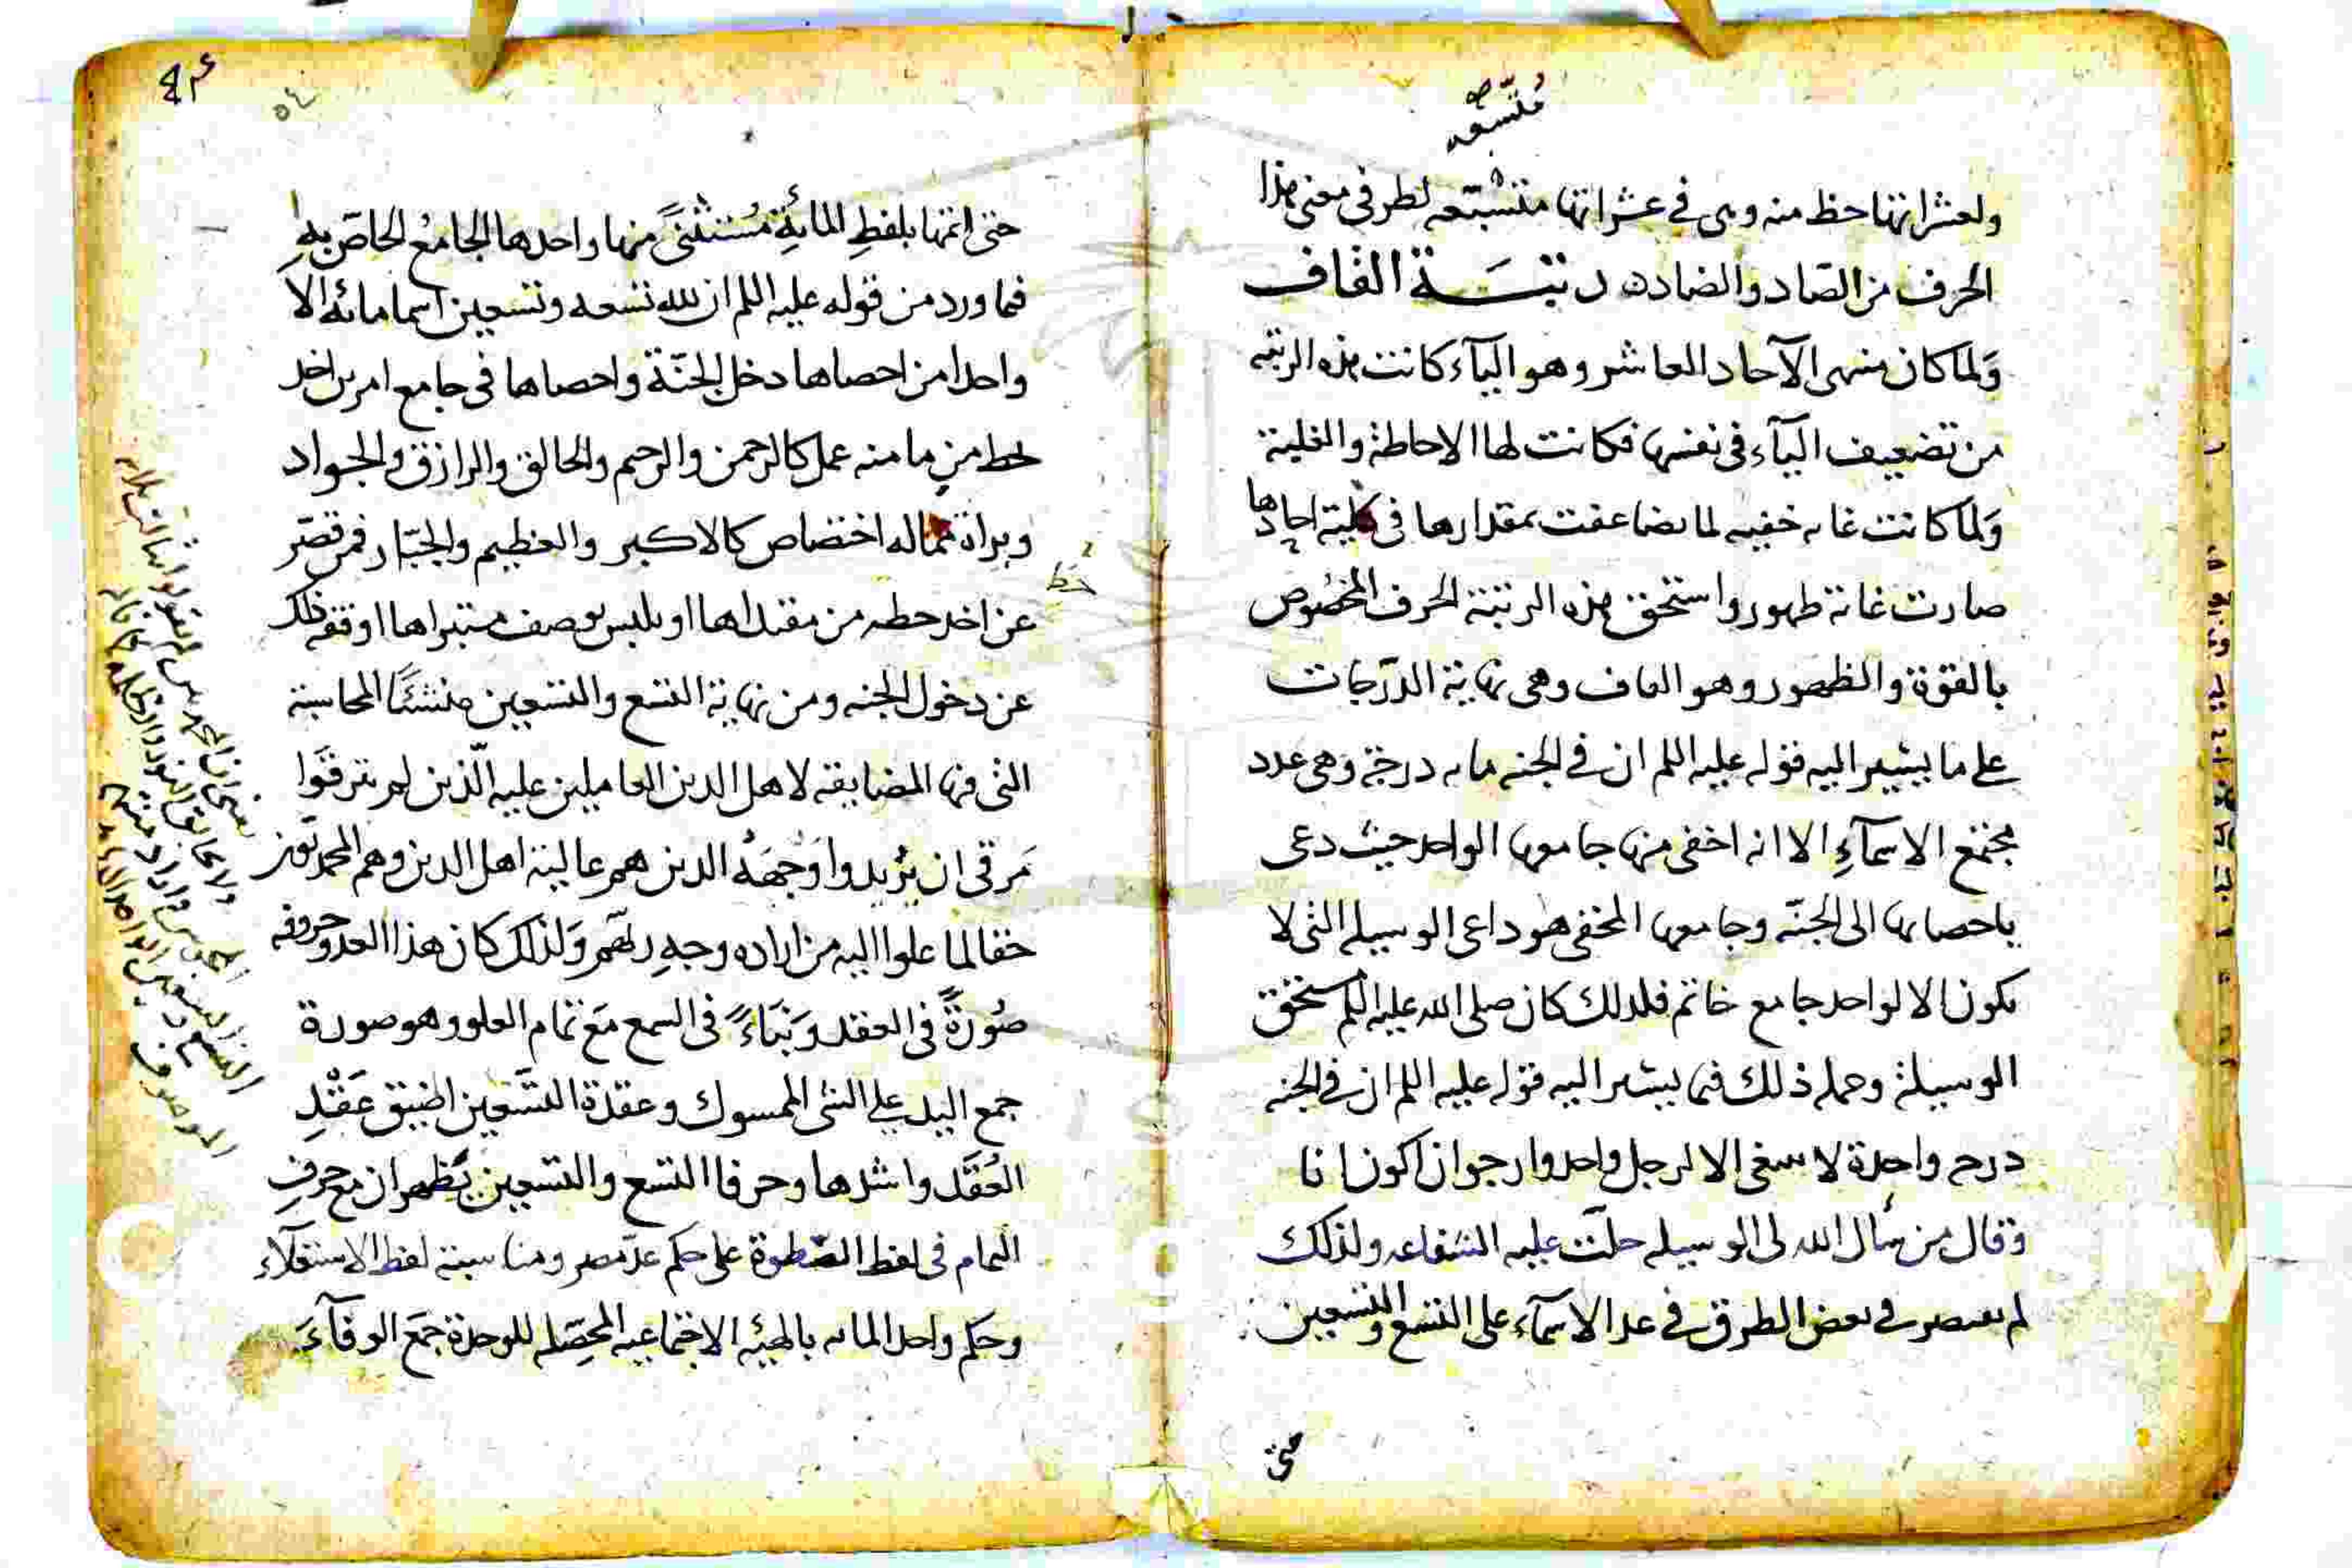 متسعه
ولعشراتها حظ منه وهى في عشراتها متسعه لطرفى معنى هذا
الحرف من الصاد والضاد رتبــة القاف
وَلما كان منتهى الآحاد العاشر وهو اليآء كانت هذه الرتبه
من تضعيف اليآء فى نفسها فكانت لها الاحاطة والغلبة
وَلما كانت غايه خفيه لما تضاعفت بمقدارها فى كلية احادها
صارت غاية ظهور واستحق هذه الرتبة الحرف المخصُوص
بالقوة والظهور وهو القاف وهى نهاية الدّرجات
على ما يشير اليه قوله عليه السلم ان في الجنه مايه درجة وهى عدد
مجتمع الاسمآءِ الا انه اخفى منها جامعها الواحد حيث دعى
باحصايها الى الجنّة وجامعها المخفى هو داعى الوسيله التى لا
تكون الا لواحد جامع خاتم فلذلك كان صلى الله عليه السلم يستحق
الوسيلة وجمله ذلك فيما يشير اليه قوله عليه السلم ان في الجنه
درجه واحدة لا تنبغى الا لرجل واحد وارجو ان اكون انا
وقال من سأل الله لى الوسيله حلّت عليه الشفاعه ولذلك
لم يقتصر في بعض الطرق في عد الاسمآء على التسع والتسعين
حتى
حتى اتمها بلفظِ المائةِ مُستثنىً منها واحدها الجامعُ الخاصّ بهِ
فما ورد من قوله عليه السلم ان لله تسعه وتسعين اسما مائه الا
واحدا من احصاها دخل الجنّة واحصاها فى جامع امرين اخذ
لحظ من ما منه عمل كالرحمن والرحيم والخالق والرازق والجواد
وبراة مماله اختصاص كالاكبر والعظيم والجبّار فمن قصّر
حظ
عن اخذ حظه من مقتداها او تلبس بوصف متبراها اوقفه ذلك
عن دخول الجنه ومن نهاية التسع والتسعين منشئا المحاسبة
التى فيها المضايقه لاهل الدين العاملين عليه الّذين لم يترقّوا
مَرقى ان يُريدوا وجهَهُ الذين هم عالية اهل الدين وهم المحمديون
حقا لما علوا اليه من اراده وجهِ ربّهم وَلذلك كان هذا العدد وحروفه
صُورةً فى العقد وَنبَاءً فى السمع مَع تمام العلو وهو صورة
جمع اليد على الشى الممسوك وعقدة التسعين اضيق عَقْدِ
العُقَد واشدها وحرفا التسع والتسعين يَظهران مع حرفِ
التمام فى لفظ السّطوة على حكم عدّ مصر ومناسبة لفظ الاستعلآء
وحكم واحد المايه بالهيئه الاجتماعيه المحصّله للوحدة جمَع الوفآءَ